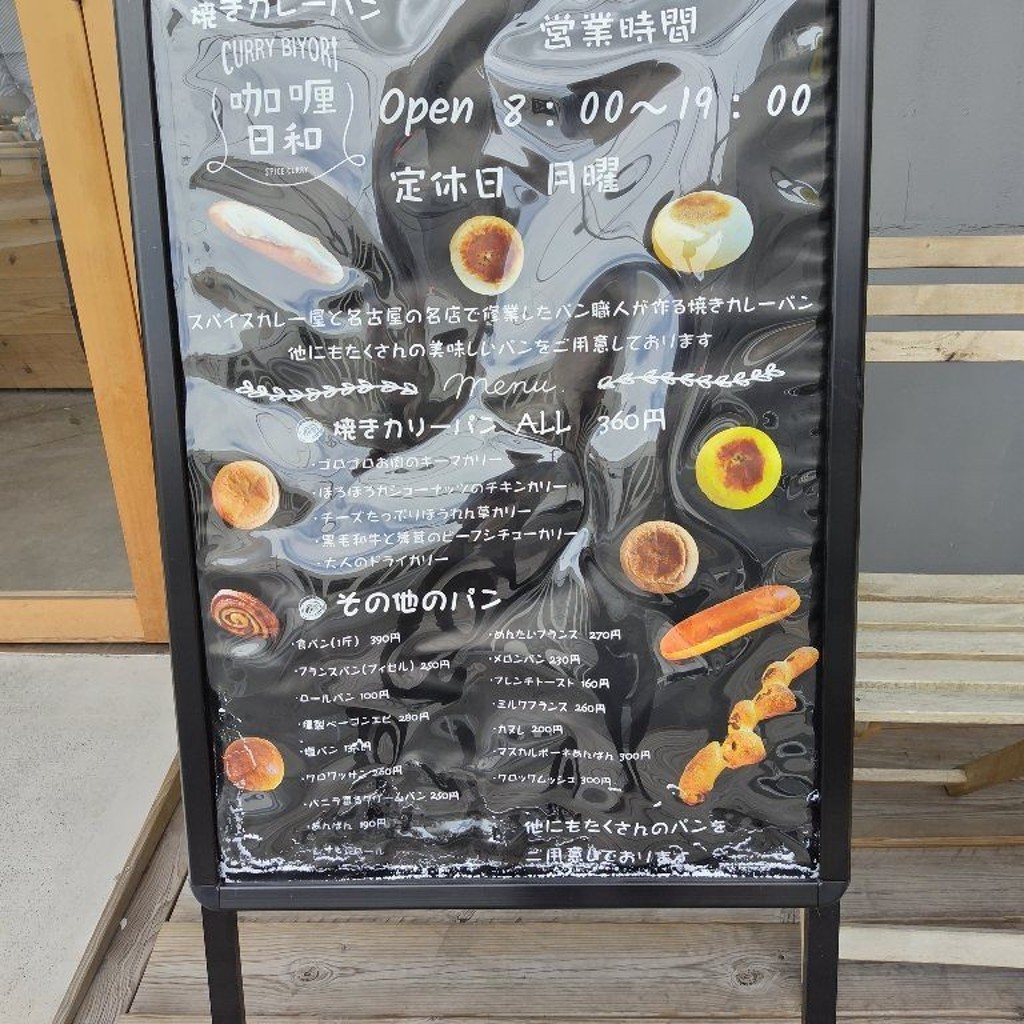 焼きカレーパン
CURRY BIYORI
咖喱
日和
SPICE CURRY
営業時間
Open 8:00～19:00
定休日 月曜
スパイスカレー屋と名古屋の名店で修業したパン職人が作る焼きカレーパン
他にもたくさんの美味しいパンをご用意しております
menu
焼きカリーパン ALL 360円
・ゴロゴロお肉のキーマカリー
・ほろほろカシューナッツのチキンカリー
・チーズたっぷりほうれん草カリー
・黒毛和牛と舞茸のビーフシチューカリー
・大人のドライカリー
その他のパン
・食パン(1斤) 390円
・フランスパン(フィセル) 250円
・ロールパン 100円
・燻製ベーコンエピ 280円
・塩パン
・クロワッサン 260円
・バニラ香るクリームパン 250円
・あんぱん 190円
・めんたいフランス 270円
・メロンパン 230円
・フレンチトースト 160円
・ミルクフランス 260円
・カヌレ 200円
・マスカルポーネあんぱん 300円
・クロックムッシュ 300円
他にもたくさんのパンを
ご用意しております